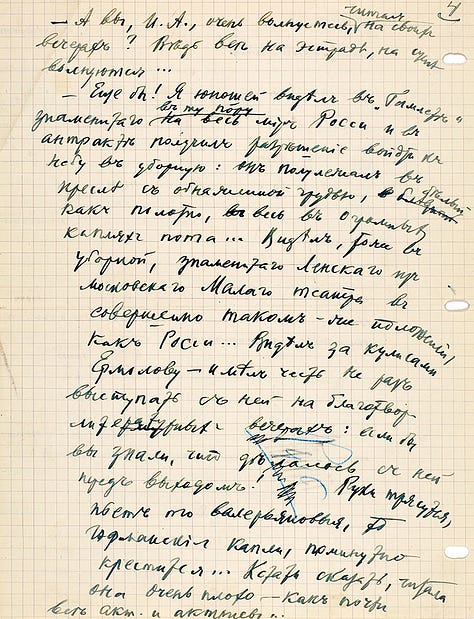 4
— А вы, И. А., очень волнуетесь, читая на своих
вечерах? Ведь все на эстраде, на сцене
волнуются...
— Еще бы! Я юношей видѣлъ въ „Гамлетѣ“
знаменитаго въ ту пору на весь міръ Росси и въ
антрактѣ получилъ разрѣшеніе войти къ
нему въ уборную: онъ полулежалъ въ
креслѣ съ обнаженной грудью, бѣлый
какъ полотно, весь въ огромныхъ
капляхъ пота... Видѣлъ, тоже въ
уборной, знаменитаго Ленскаго изъ
московскаго Малаго театра въ
совершенно такомъ-же положеніи,
какъ Росси... Видѣлъ за кулисами
Ермолову — имѣлъ честь не разъ
выступать съ ней на благотвор.
литературныхъ вечерахъ: если бы
вы знали, что дѣлалось съ ней
передъ выходомъ! Руки трясутся,
пьетъ то валерьяновыя, то
гофманскія капли, поминутно
крестится... Кстати сказать, читала
она очень плохо — какъ почти
всѣ акт. и актрисы...